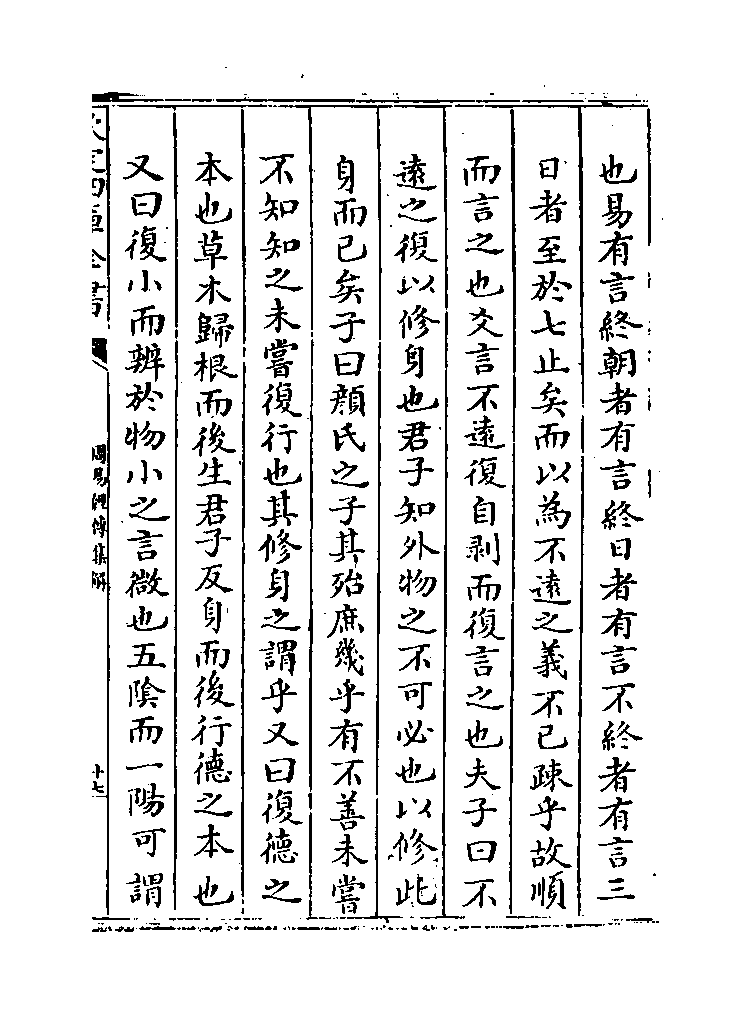 也易有言終朝者有言終日者有言不終者有言三
日者至於七止矣而以為不遠之義不已疎乎故順
而言之也爻言不遠復自剥而復言之也夫子曰不
遠之復以修身也君子知外物之不可必也以修此
身而已矣子曰顔氏之子其殆庶幾乎有不善未嘗
不知知之未嘗復行也其修身之謂乎又曰復德之
本也草木歸根而後生君子反身而後行德之本也
又曰復小而辨於物小之言微也五隂而一陽可謂
欽定四庫全書
周易經傳集解
十七